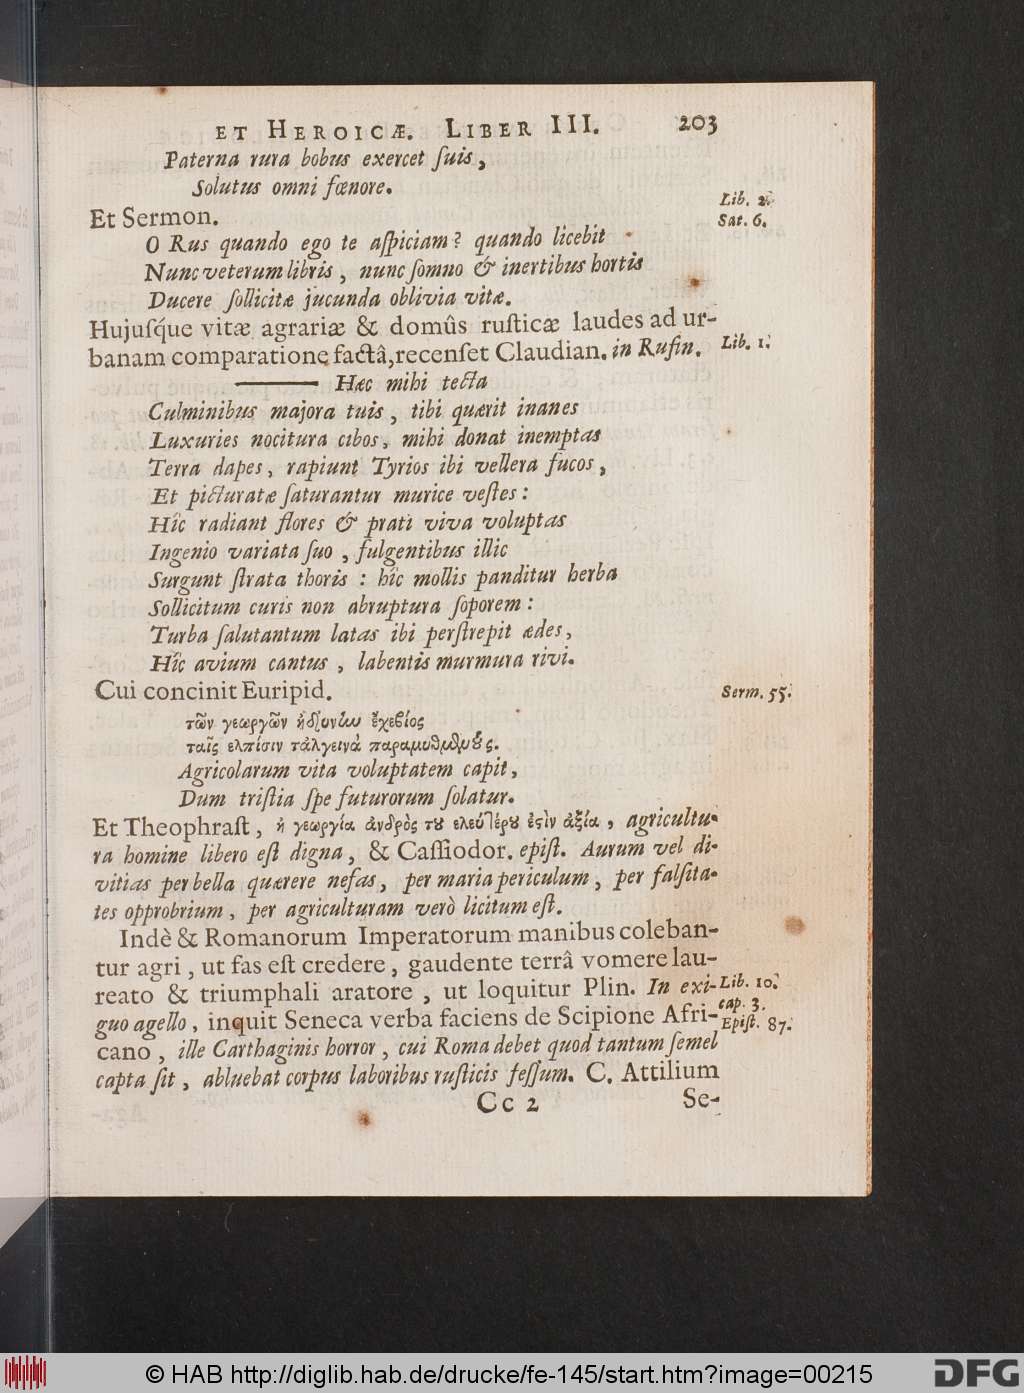 ET HEROICÆ. LIBER III. 203
Paterna rura bobus exercet ſuis,
Solutus omni fœnore.
Et Sermon.
Lib. 2.
Sat. 6.
O Rus quando ego te aſpiciam? quando licebit
Nunc veterum libris, nunc ſomno & inertibus hortis
Ducere ſollicitæ jucunda oblivia vitæ.
Hujuſq́ue vitæ agrariæ & domûs ruſticæ laudes ad ur-
banam comparatione factâ, recenſet Claudian. in Rufin. Lib. 1.
Hæc mihi tecta
Culminibus majora tuis, tibi quærit inanes
Luxuries nocitura cibos, mihi donat inemptas
Terra dapes, rapiunt Tyrios ibi vellera fucos,
Et picturatæ ſaturantur murice veſtes:
Hîc radiant flores & prati viva voluptas
Ingenio variata ſuo, fulgentibus illic
Surgunt ſtrata thoris: hîc mollis panditur herba
Sollicitum curis non abruptura ſoporem:
Turba ſalutantum latas ibi perſtrepit ædes,
Hîc avium cantus, labentis murmura rivi.
Cui concinit Euripid. Serm. 55.
τῶν γεωργῶν
ταῖς ελπίσιν τἀλγεινὰ
Agricolarum vita voluptatem capit,
Dum triſtia ſpe futurorum ſolatur.
Et Theophraſt, ἡ γεωργία ἀνδρὸς τȣ ἐϛὶν ἀξία, agricultu-
ra homine libero eſt digna, & Caſſiodor. epiſt. Aurum vel di-
vitias per bella quærere nefas, per maria periculum, per falſita-
tes opprobrium, per agriculturam verò licitum eſt.
Indè & Romanorum Imperatorum manibus coleban-
tur agri, ut fas eſt credere, gaudente terrâ vomere lau-
reato & triumphali aratore, ut loquitur Plin. In exi- Lib. 10.
cap. 3.
guo agello, inquit Seneca verba faciens de Scipione Afri- Epiſt. 87.
cano, ille Carthaginis horror, cui Roma debet quod tantum ſemel
capta ſit, abluebat corpus laboribus ruſticis feſſum. C. Attilium
Cc 2 Se-
© HAB http://diglib.hab.de/drucke/fe-145/start.htm?image=00215
DFG